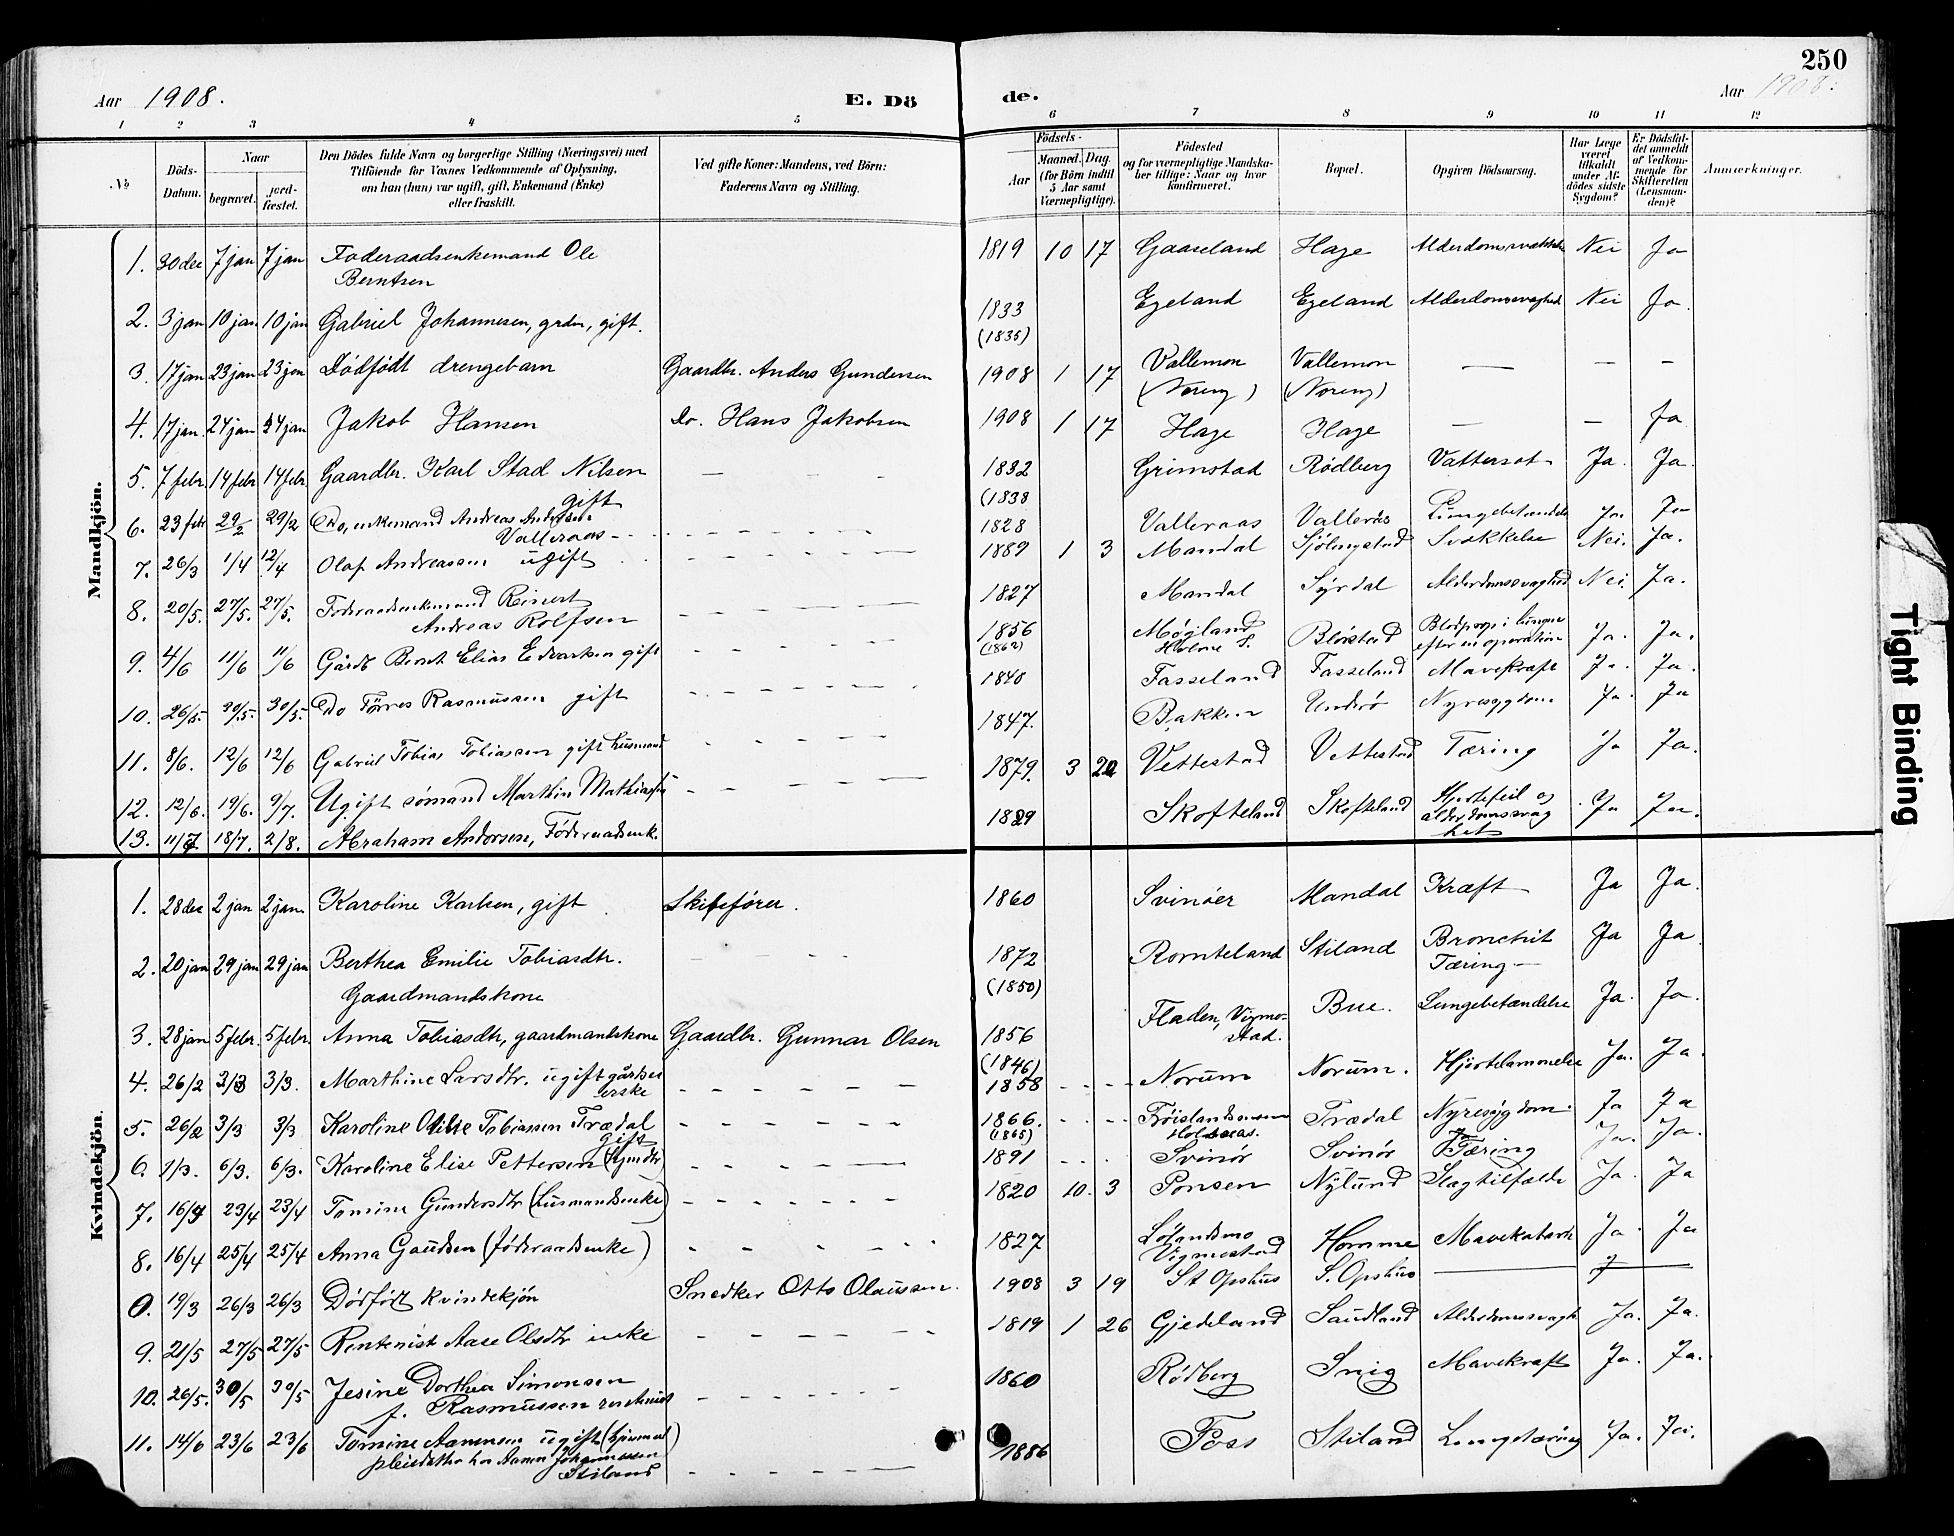 250
Aar 1908. E. Dö de. Aar 1908.
1 2 3 4 5 6 7 8 9 10 11 12
No Döds-Datum. Naar begravet. jord-fæstet. Den Dödes fulde Navn og borgerlige Stilling (Næringsvei) med Tilföiende for Voxnes Vedkommende af Oplysning, om han (hun) var ugift, gift, Enkemand (Enke) eller fraskilt. Ved gifte Koner: Mandens, ved Börn: Faderens Navn og Stilling. Födsels- Aar Maaned. Dag. (for Börn indtil 5 Aar samt Værnepligtige). Födested og for værnepligtige Mandskaber tillige: Naar og hvor konfirmeret. Bopæl. Opgiven Dödsaarsag. Har Læge været tilkaldt under Afdödes sidste Sygdom? Er Dödsfaldet anmeldt af Vedkommende for Skifteretten (Lensmanden)? Anmærkninger.
Mandkjön.
1. 30 dec 7 jan 7 jan Föderaadsenkemand Ole 1819 10 17 Gaaseland Hage Alderdomssvækkelse Nei Ja
Berntsen
2. 3 jan 10 jan 10 jan Gabriel Johannesen, grdm, gift. 1833 Egeland Egeland Alderdomssvaghed Nei Ja
(1835)
3. 17 jan 23 jan 23 jan Dödfödt drengebarn Gaardbr. Anders Gundersen 1908 1 17 Vallemon Vallemon — — —
(Noreng) (Noreng)
4. 17 jan. 24 jan 24 jan Jakob Hansen Do. Hans Jakobsen 1908 1 17 Hage Hage — — Ja
5. 7 febr. 14 febr 14 febr. Gaardbr. Karl Stad Nilsen gift 1832 Grimstad Rödberg Vattersot Ja. Ja.
(1838
6. 23 febr 29/2 29/2 Do, enkemand Andreas Andersen 1828 Valleraas Valleraas Lungebetændelse Ja. Ja
Valleraas
7. 26/3 1/4 12/4 Olaf Andreassen ugift 1889 1 3 Mandal Sjölingstad Svækkelse Nei. Ja.
8. 20/5 27/5. 27/5. Föderaadsenkemand Reinert 1827 Mandal Syrdal Alderdomssvaghed Nei. Ja.
Andreas Rolfsen
9. 4/6 11/6 11/6 Gårdbr Bernt Elias Edvartsen gift 1856 Møgland Blørstad Blodprop i lungen Ja. Ja.
(1862) Holme S. efter en operation
10. 26/5. 30/5. 30/5. Do Törres Rasmussen gift 1840 Fasseland Fasseland Mavekræft Ja. Ja.
11. 8/6. 12/6 12/6 Gabriel Tobias Tobiassen gift husmand 1847. Bakken Underö Nyresygdom Ja. Ja
12. 12/6. 19/6. 9/7. Ugift sømand Marthin Mathiassen 1879. 3 20 Vettestad Vettestad Tæring Ja Ja.
13. 11/7 18/7. 2/8. Abraham Andersen, Föderaadsenk. 1829 Skofteland Skofteland Hjertefeil og Ja Ja.
alderdomssvag
het
Kvindekjön.
1. 28 dec 2 jan 2 jan. Karoline Karlsen, gift Skibsförer. 1860 Svinöer Mandal Kræft Ja Ja.
2. 20 jan 29 jan 29 jan Berthea Emilie Tobiasdtr. 1872 Romteland Stiland Bronchit Ja Ja
Gaardmandskone (1850) Tæring
3. 28 jan 5 febr. 5 febr. Anna Tobiasdtr, gaardmandskone Gaardbr. Gunnar Olsen 1856 Fladen, Vigmo-stad. Bue. Lungebetændelse Ja. Ja.
(1846)
4. 26/2 3/3 3/3. Marthine Larsdtr. ugift 1858 Norum Norum. Hjertelammelse Ja. Ja.
5. 26/2 3/3 3/3 Karoline Otilie Tobiassen Trædal 1866. Fröislandsmoen Trædal Nyresygdom. Ja Ja
gift (1865)
6. 1/3. 6/3. 6/3. Karoline Elise Pettersen 1891 Svinör Svinör Tæring Ja. Ja.
7. 16/4 23/4 23/4 Tomine Gundersdtr (Husmandsenke) 1820 10. 3 Ponsen Nylund Slagtilfælde Ja. Ja
8. 16/4 25/4 25/4 Anna Gaudsen (Föderaadsenke) 1827 Lölandsmo Homme Mavekatarrh Ja. Ja
Vigmostad
0. 19/3 26/3 26/3 Dödfödt kvindekjön Snedker Otto Olaussen. 1908 3 19 St Opshus S. Opshus —
9. 21/5 27/5 27/5 Rentenist Aase Olsdtr enke 1819 1 26 Gjedeland Saudland Alderdomssvagh Ja. Ja.
10. 26/5. 30/5 30/5 Jesine Dorthea Simonsen 1860 Rödberg Snig Mavekræft Ja. Ja.
f. Rasmussen
11. 14/6 23/6 23/6 Tomine Aanensen ugift 1886 Foss Stiland Lungetæring Ja. Ja.
pleiedatter hos Aanen Johannessen
Stiland
Tight Binding